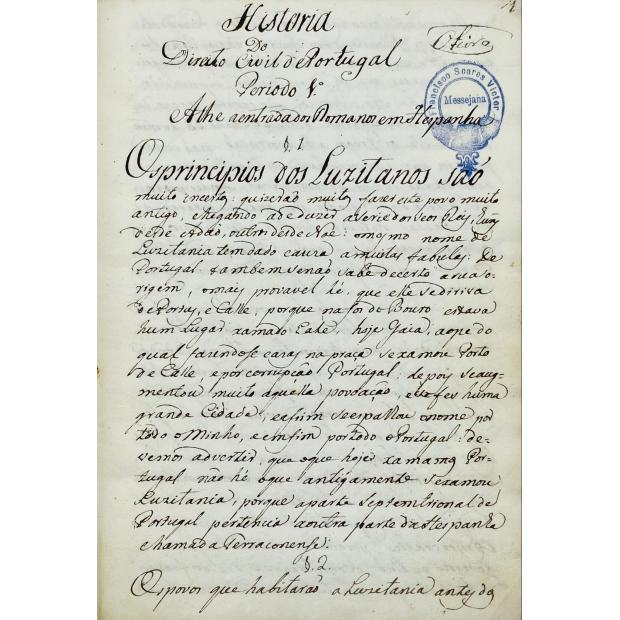 Historia
Do
Direito Civil d'Portugal
Periodo 1º
Athe a entrada dos Romanos em Hespanha
Francisco Soares Victor
Messejana
§. 1
Os principios dos Luzitanos são
muito incertos: quizerão muitos fazer este povo muito
antigo, chegando a deduzir a serie dos seos Reis, huns
desde Adão, outros desde Noé: o mesmo nome de
Luzitania tem dado cauza a muitas fabulas: De
Portugal tambem se não sabe decerto a sua o-
rigem, o mais provavel hé, que este se diriva
de Portus, e Calle, porque na foz do Douro estava
hum Lugar xamado Cale, hoje Gaia, ao pe do
qual fazendose cazas na praça se xamou Porto
de Calle e por corrupção Portugal: depois se aug-
mentou muito aquella povoação, e se fes huma
grande Cidade, e assim se espalhou o nome por
todo o Minho, e emfim por todo o Portugal: de-
vemos advertir, que o que hoje xamamos Por-
tugal não hé o que antigamente se xamou
Luzitania, porque a parte Septemtrional de
Portugal pertencia a outra parte da Hespanha
chamada Terraconense:
§. 2.
Os povos que habitarão a Luzitania antes da